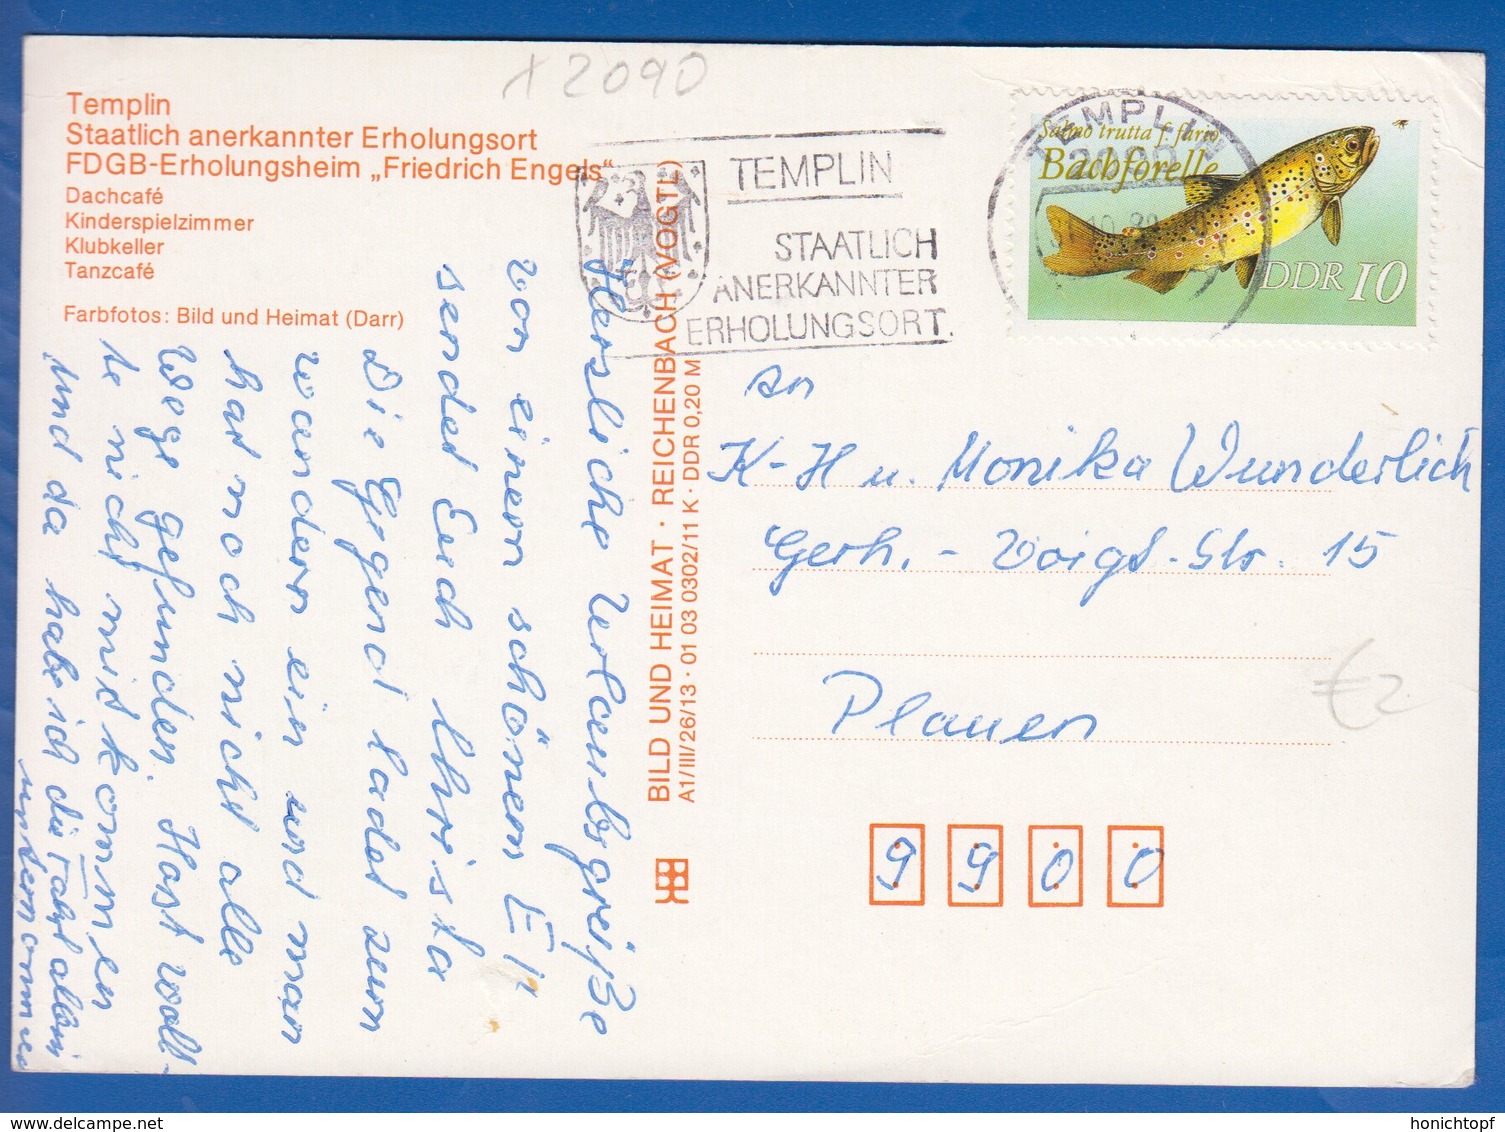 x 2090
Templin
Staatlich anerkannter Erholungsort
FDGB-Erholungsheim „Friedrich Engels“
Dachcafé
Kinderspielzimmer
Klubkeller
Tanzcafé
Farbfotos: Bild und Heimat (Darr)
TEMPLIN
STAATLICH
ANERKANNTER
ERHOLUNGSORT.
TEMPLIN
Salmo trutta f. fario
Bachforelle
DDR 10
BILD UND HEIMAT · REICHENBACH (VOGTL)
A1/III/26/13 · 01 03 0302/11 K · DDR 0,20 M
Herzliche Urlaubsgrüße
von einem schönen
sendet Euch Christa
Die Gegend ladet zum
wandern ein und man
hat noch nicht alle
Wege gefunden. Hast woll-
te nicht mitkommen
und da habe ich die Fahrt allein
unternommen
An
K-H u. Monika Wunderlich
Gerh. - Voigt-Str. 15
Plauen
9900
€2
honichtopf
www.delcampe.net